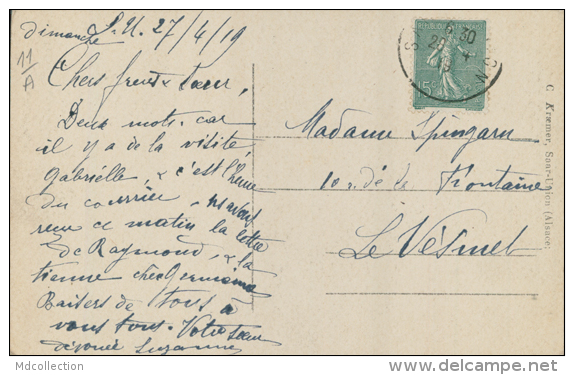 dimanche S.U. 27/4/19
11/A
Chers frère & sœur,
Deux mots car
il y a de la visite,
Gabriélle, & c'est l'heure
du courrier - ns avons
reçu ce matin la lettre
de Raymond, & la
tienne chère Germaine
Baisers de tous à
vous tous. Votre sœur
dévouée Suzanne
Madame Spingarn
10 r. de la Fontaine
Le Vésinet
C. Kræmer, Saar-Union (Alsace)
Mdcollection
www.delcampe.net